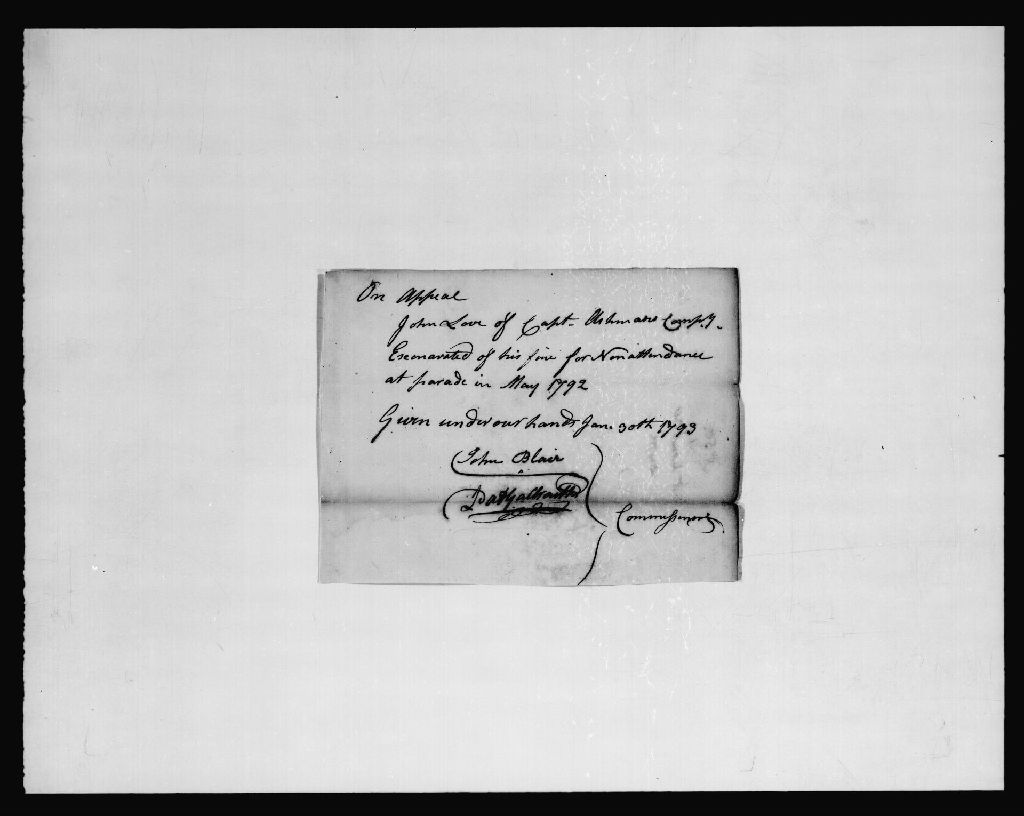 On Appeal
John Love of Capt. Ashmans Compy.
Exonarated of his fine for Nonattendance
at parade in May 1792
Given under our hands Jan. 30th 1793
John Blair
Commissioners